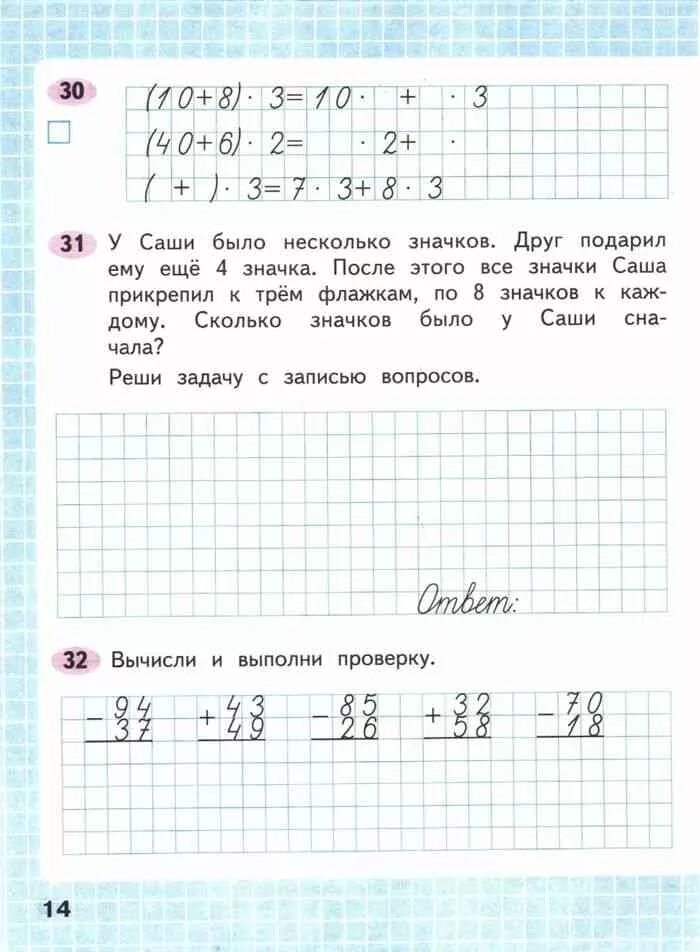 30
(10+8)· 3=10· + · 3
(40+6)· 2= · 2+ ·
( + )· 3=7· 3+8· 3
31 У Саши было несколько значков. Друг подарил
ему ещё 4 значка. После этого все значки Саша
прикрепил к трём флажкам, по 8 значков к каж-
дому. Сколько значков было у Саши сна-
чала?
Реши задачу с записью вопросов.
Ответ:
32 Вычисли и выполни проверку.
− 94 + 43 − 85 + 32 − 70
37 49 26 58 18
14